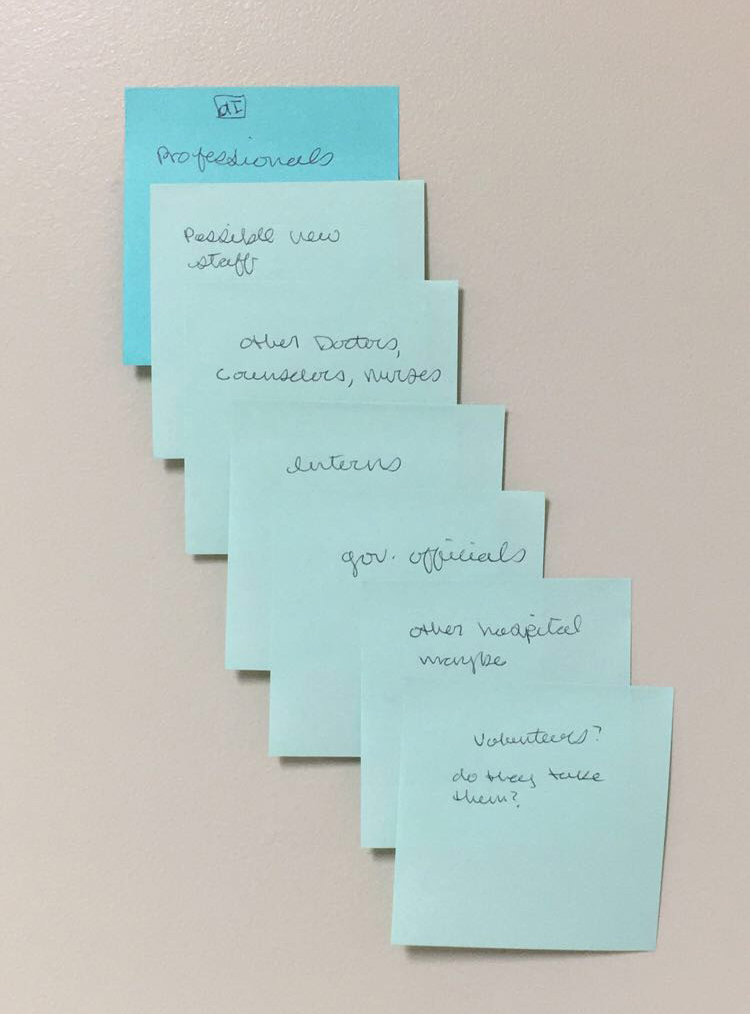 dI
Professionals
Possible new
staff
other Doctors,
counselors, nurses
Interns
gov. officials
other hospital
maybe
Volunteers?
do they take
them?